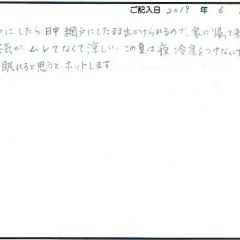 ご記入日 2019 年 6
にしたら日中網戸にしたまま出かけられるので、家に帰って来
空気がムレてなくて涼しい。この夏は夜冷房をつけないで
眠れると思うとホットします